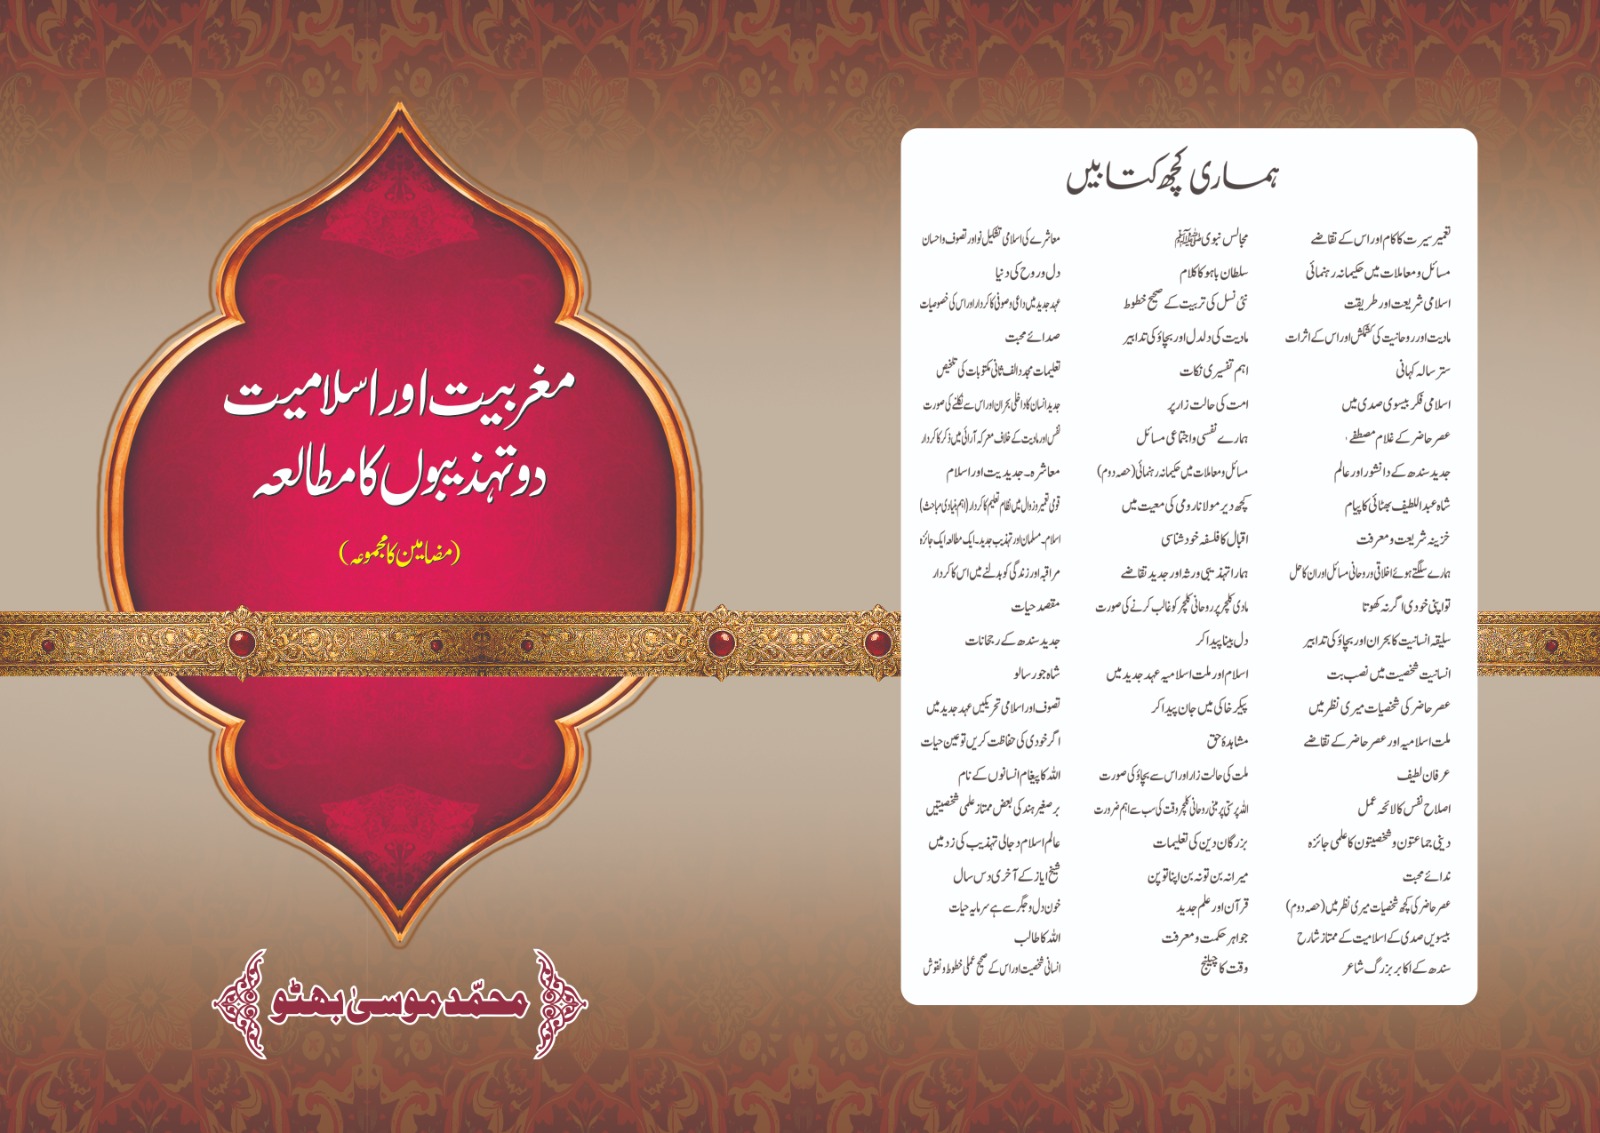 مغربیت اور اسلامیت
دو تہذیبوں کا مطالعہ
(مضامین کا مجموعہ)
محمّد موسیٰ بھٹو
ہماری کچھ کتابیں
تعمیر سیرت کا کام اور اس کے تقاضے
مسائل و معاملات میں حکیمانہ رہنمائی
اسلامی شریعت اور طریقت
مادیت اور روحانیت کی کشمکش اور اس کے اثرات
ستر سالہ کہانی
اسلامی فکر بیسوی صدی میں
عصر حاضر کے غلام مصطفےٰ
جدید سندھ کے دانشور اور عالم
شاہ عبداللطیف بھٹائی کا پیام
خزینہ شریعت و معرفت
ہمارے سلگتے ہوئے اخلاقی و روحانی مسائل اور ان کا حل
تو اپنی خودی اگر نہ کھوتا
سلیقہ انسانیت کا بحران اور بچاؤ کی تدابیر
انسانیت شخصیت میں نصب بت
عصر حاضر کی شخصیات میری نظر میں
ملت اسلامیہ اور عصر حاضر کے تقاضے
عرفان لطیف
اصلاح نفس کا لائحہ عمل
دینی جماعتون و شخصیتون کا علمی جائزہ
ندائے محبت
عصر حاضر کی کچھ شخصیات میری نظر میں (حصہ دوم)
بیسویں صدی کے اسلامیت کے ممتاز شارح
سندھ کے اکابر بزرگ شاعر
مجالس نبوی ﷺ
سلطان باہو کا کلام
نئی نسل کی تربیت کے صحیح خطوط
مادیت کی دلدل اور بچاؤ کی تدابیر
اہم تفسیری نکات
امت کی حالت زار پر
ہمارے نفسی و اجتماعی مسائل
مسائل و معاملات میں حکیمانہ رہنمائی (حصہ دوم)
کچھ دیر مولانا رومی کی معیت میں
اقبال کا فلسفہ خود شناسی
ہمارا تہذیبی ورثہ اور جدید تقاضے
مادی کلچر پر روحانی کلچر کو غالب کرنے کی صورت
دل بینا پیدا کر
اسلام اور ملت اسلامیہ عہد جدید میں
پیکر خاکی میں جان پیدا کر
مشاہدۂ حق
ملت کی حالت زار اور اس سے بچاؤ کی صورت
اللہ پرستی پر مبنی روحانی کلچر وقت کی سب سے اہم ضرورت
بزرگان دین کی تعلیمات
میرا نہ بن تو نہ بن اپنا تو بن
قرآن اور علم جدید
جواہر حکمت و معرفت
وقت کا چیلنج
معاشرے کی اسلامی تشکیل نو اور تصوف و احسان
دل و روح کی دنیا
عہد جدید میں داعی و صوفی کا کردار اور اس کی خصوصیات
صدائے محبت
تعلیمات مجدد الف ثانی مکتوبات کی تلخیص
جدید انسان کا داخلی بحران اور اس سے نکلنے کی صورت
نفس اور مادیت کے خلاف معرکہ آرائی میں ذکر کا کردار
معاشرہ۔ جدیدیت اور اسلام
قومی تعمیر و زوال میں نظام تعلیم کا کردار (اہم بنیادی مباحث)
اسلام۔ مسلمان اور تہذیب جدید۔ ایک مطالعہ ایک جائزہ
مراقبہ اور زندگی کو بدلنے میں اس کا کردار
مقصد حیات
جدید سندھ کے رجحانات
شاہ جو رسالو
تصوف اور اسلامی تحریکیں عہد جدید میں
اگر خودی کی حفاظت کریں تو عین حیات
اللہ کا پیغام انسانوں کے نام
برصغیر ہند کی بعض ممتاز علمی شخصیتیں
عالم اسلام دجالی تہذیب کی زد میں
شیخ ایاز کے آخری دس سال
خون دل و جگر سے ہے سرمایہ حیات
اللہ کا طالب
انسانی شخصیت اور اس کے صحیح عملی خطوط و نقوش